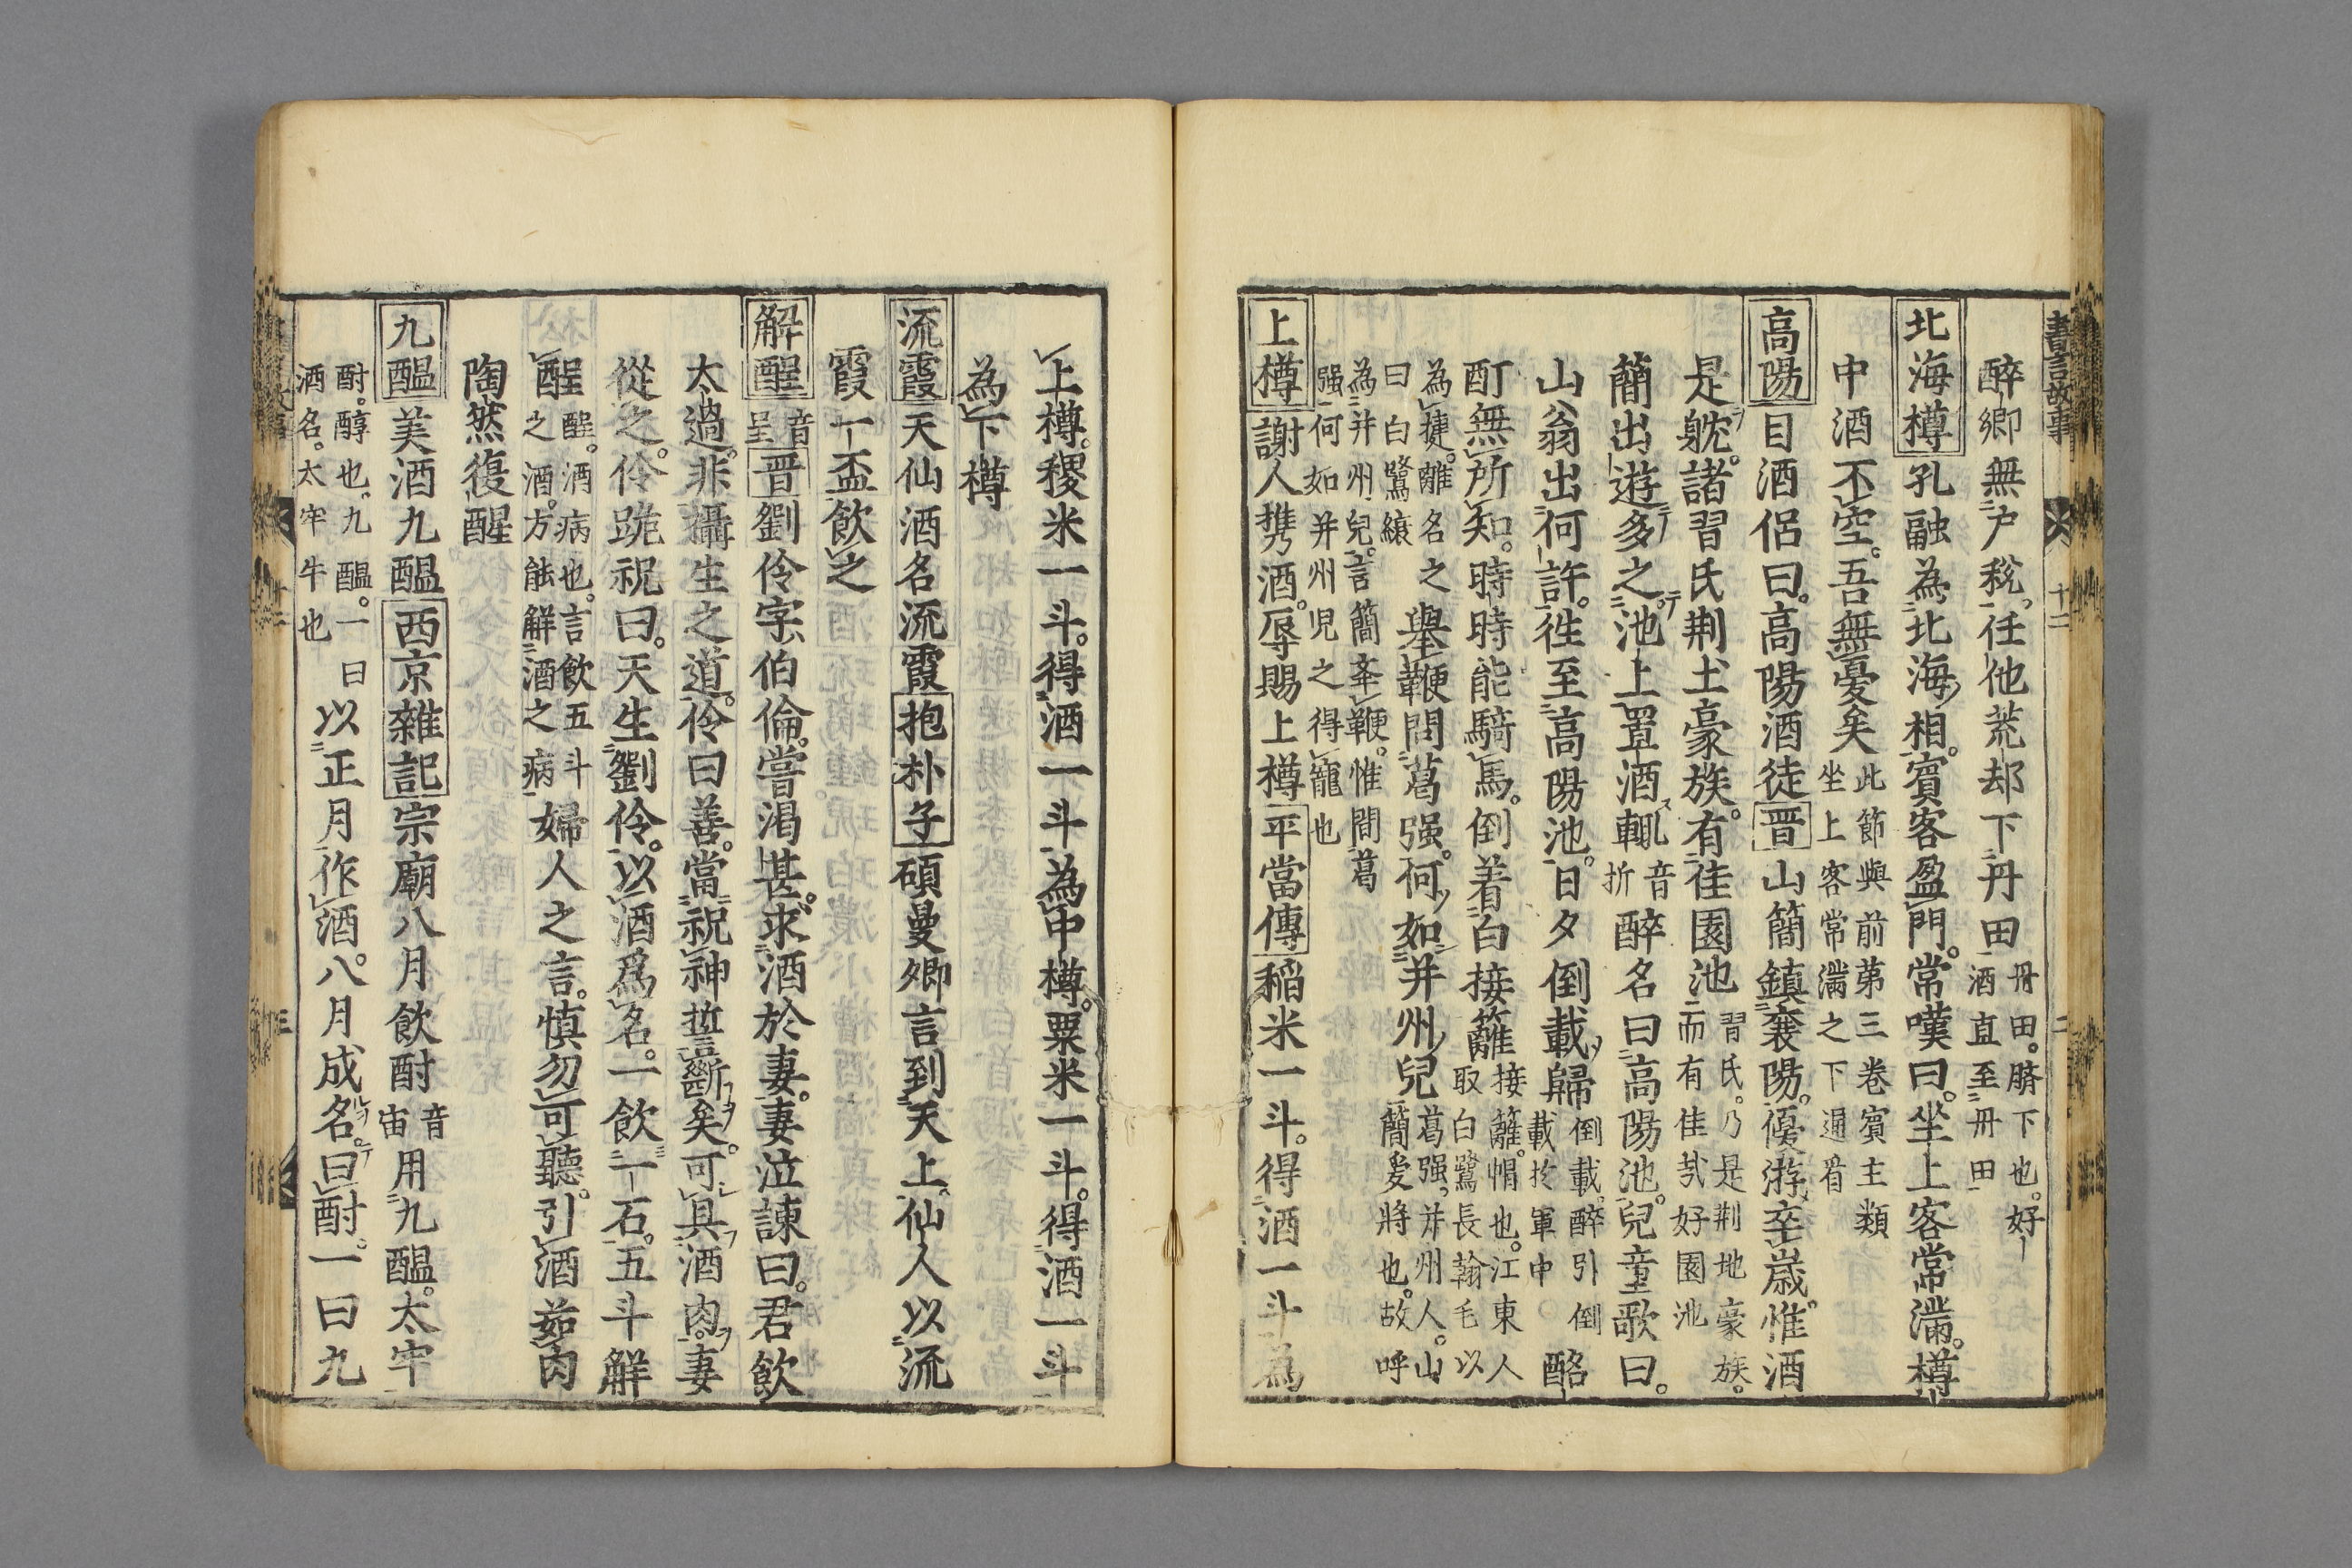 書言故事
十二
二
醉鄉無户稅任他荒却下丹田丹田臍下也好酒直至丹田
北海樽孔融為北海相賓客盈門常嘆曰坐上客常滿樽
中酒不空吾無憂矣此節與前第三卷賓主類坐上客常滿之下通看
高陽目酒侶曰高陽酒徒晋山簡鎮襄陽優游卒歲惟酒
是躭諸習氏荆土豪族有佳園池習氏乃是荆地豪族而有佳哉好園池
簡出遊多之池上置酒輒音折醉名曰高陽池兒童歌曰
山翁出何許徃至高陽池日夕倒載歸倒載醉引倒載於軍中酩
酊無所知時時能騎馬倒着白接籬接籬帽也江東人取白鷺長翰毛以
為䍦名之曰白鷺縗舉鞭問葛强何如并州兒葛强并州人山簡爱將也故呼
為并州兒言簡舉鞭惟問葛强何如并州児之得寵也
上樽謝人携酒辱賜上樽平當傳稲米一斗得酒一斗為
上樽稷米一斗得酒一斗為中樽粟米一斗得酒一斗
為下樽
流霞天仙酒名流霞抱朴子碩曼卿言到天上仙人以流
霞一盃飲之
解酲音呈晋劉伶字伯倫嘗渇甚求酒於妻妻泣諌曰君飲
太過非攝生之道伶曰善當祝神誓斷矣可具酒肉妻
從之伶跪祝曰天生劉伶以酒爲名一飲一石五斗解
酲酲酒病也言飲五斗之酒方能解酒之病婦人之言慎勿可聽引酒茹肉
陶然復醒
九醖美酒九醖西京雜記宗廟八月飲酎音宙用九醖太牢
酎醇也九醖一曰酒名太牢牛也以正月作酒八月成名曰酎一曰九